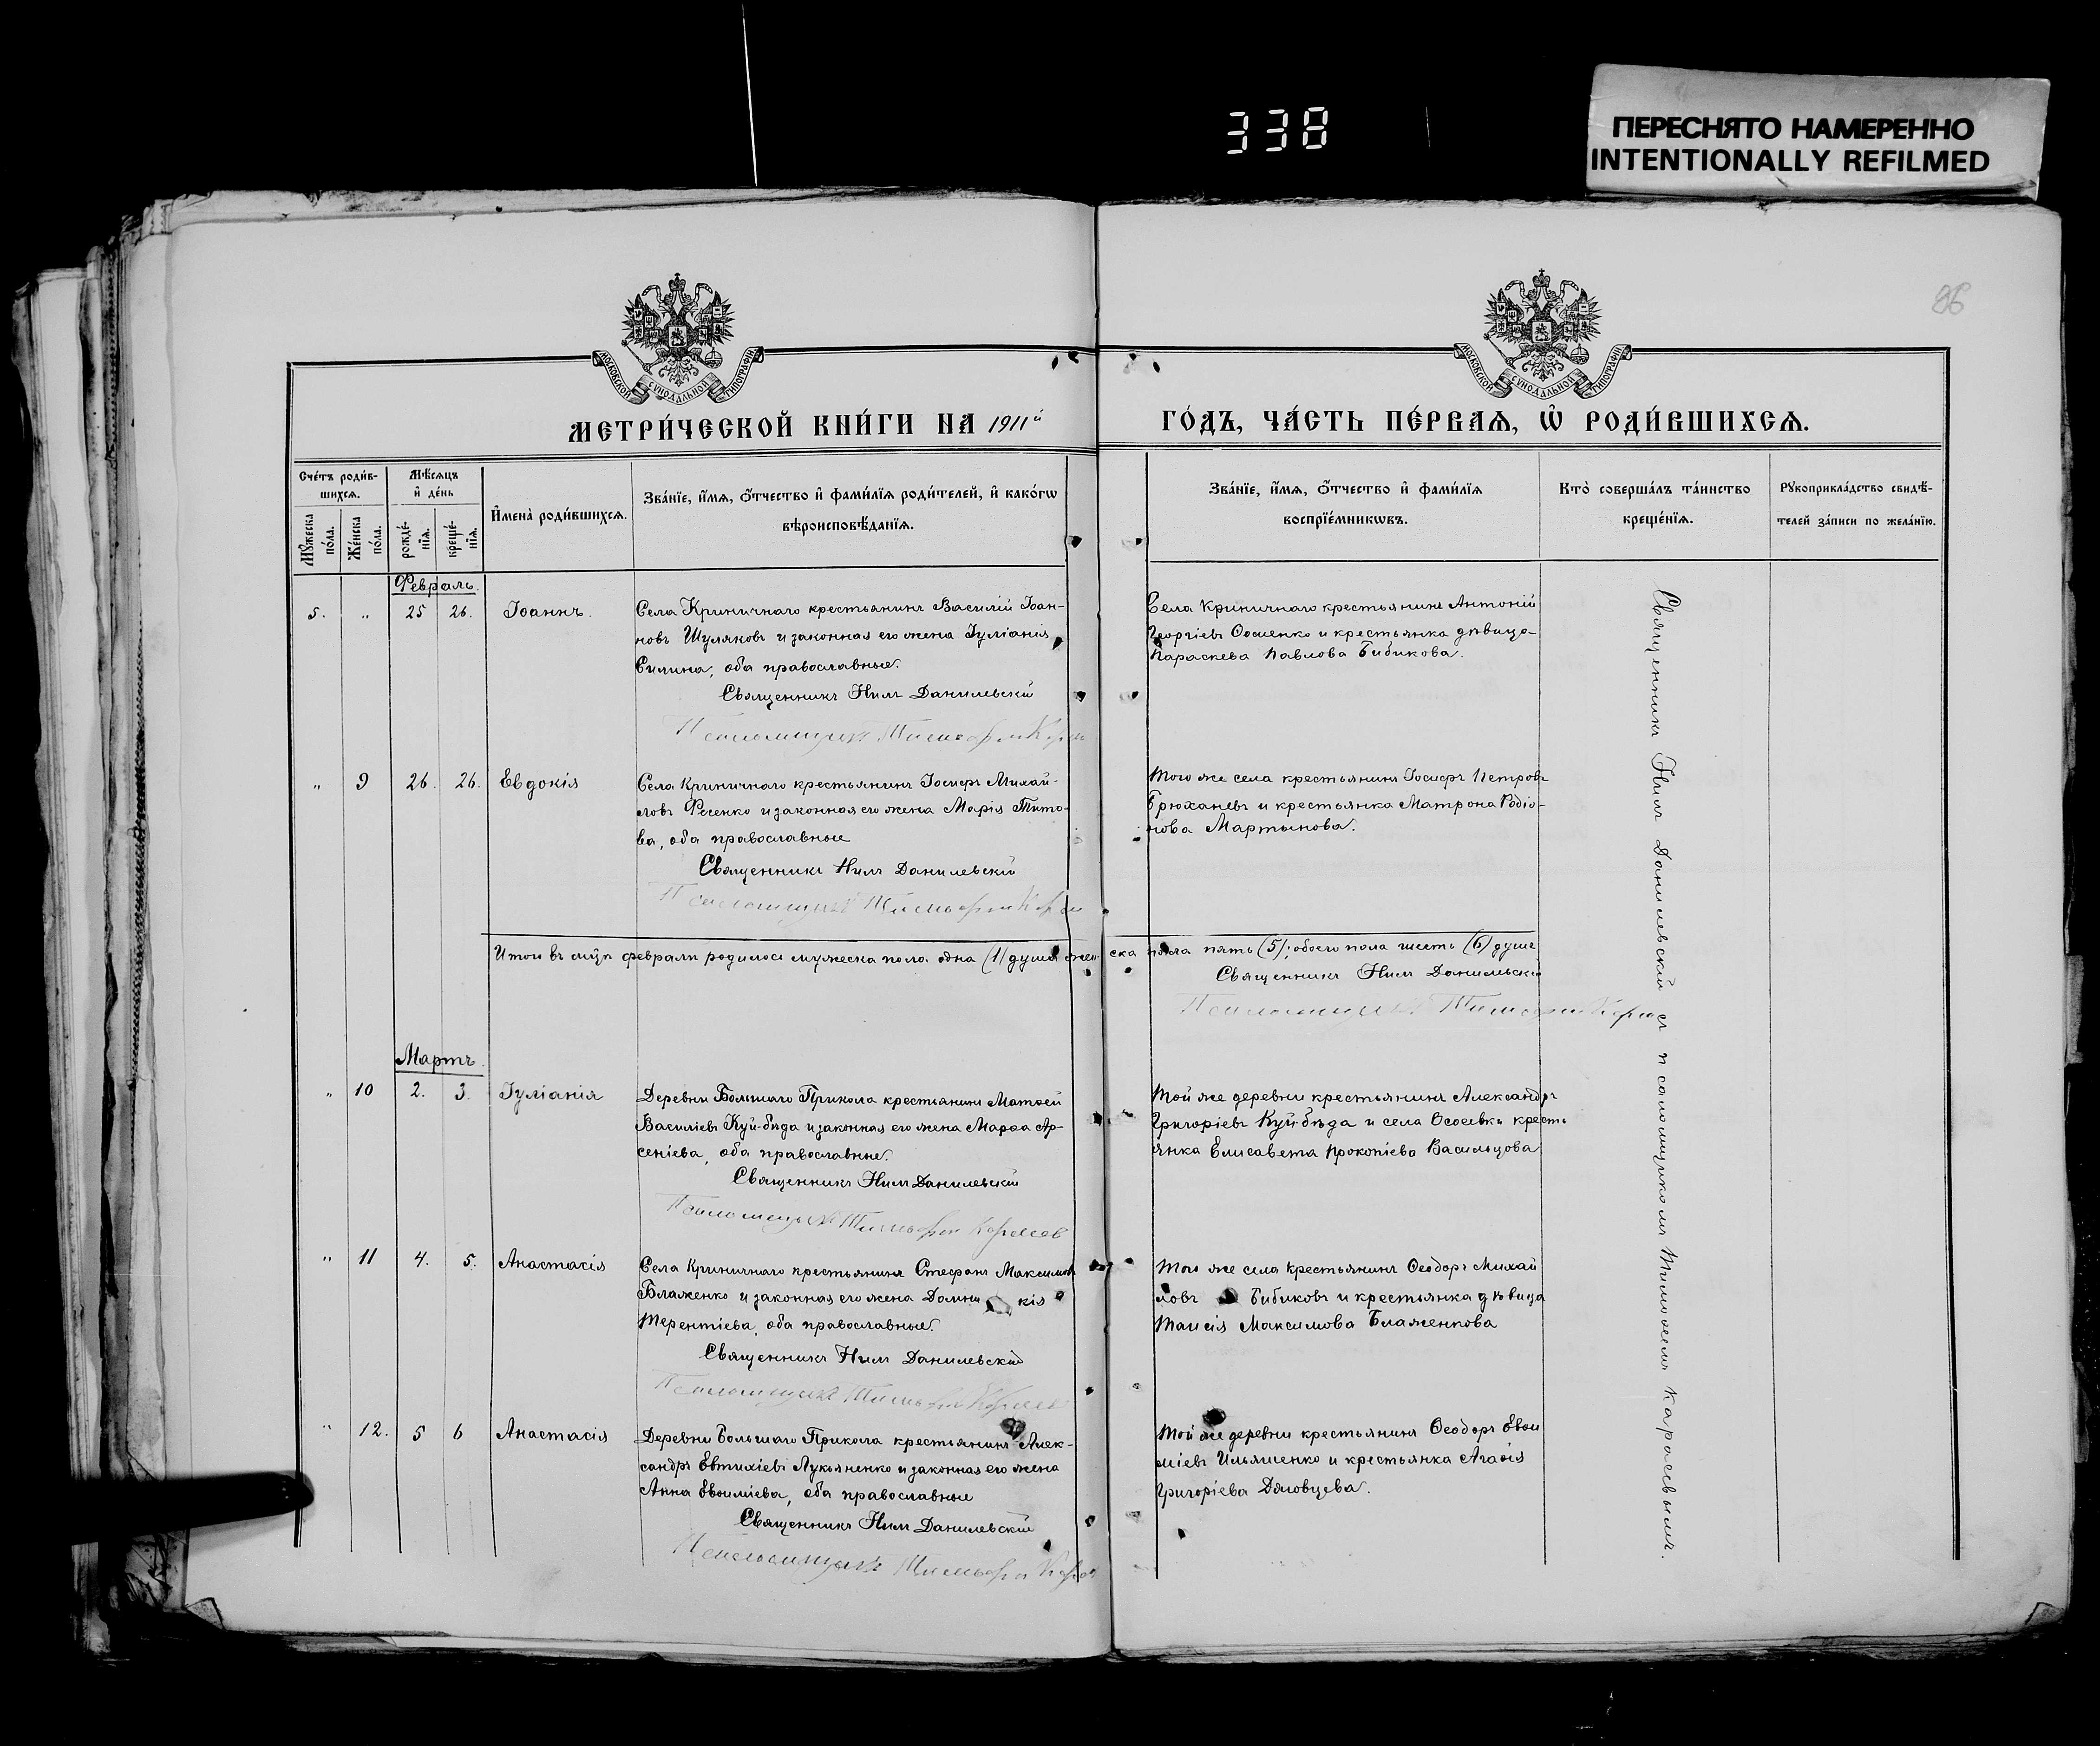 338
ПЕРЕСНЯТО НАМЕРЕННО
INTENTIONALLY REFILMED
86
МОСКОВСКОЙ СѴНОДАЛЬНОЙ ТИПОГРАФІИ
МОСКОВСКОЙ СѴНОДАЛЬНОЙ ТИПОГРАФІИ
МЕТРИ́ЧЕСКОЙ КНИ́ГИ НА 1911й
ГО́ДЪ, ЧА́СТЬ ПЕ́РВАѦ, Ѡ҆ РОДИ́ВШИХСѦ.
Сче́тъ роди́в-
шихсѧ.
Мꙋ́жеска по́ла.
Же́нска по́ла.
Мѣ́сѧцъ
и҆ де́нь
рожде́-
нїѧ.
креще́-
нїѧ.
И҆мена̀ роди́вшихсѧ.
Зва́нїе, и҆́мѧ, ѻ҆́тчество и҆ фами́лїѧ роди́телей, и҆ како́гѡ
вѣроисповѣ́данїѧ.
Зва́нїе, и҆́мѧ, ѻ҆́тчество и҆ фами́лїѧ
воспрїе́мникѡвъ.
Кто̀ соверша́лъ та́инство
креще́нїѧ.
Рꙋкоприкла́дство свидѣ́-
телей за́писи по жела́нїю.
Февраль.
5. " 25 26. Іоаннъ.
Села Криничнаго крестьянинъ Василій Іоан-
новъ Шуляковъ и законная его жена Іуліанія
Силина, оба православные.
Священникъ Нилъ Данилевскій
Псаломщикъ Тимоѳей
Села Криничнаго крестьянинъ Антоній
Георгіевъ и крестьянка дѣвица
Параскева Павлова Бибикова.
" 9 26. 26. Евдокія
Села Криничнаго крестьянинъ Іосифъ Михай-
ловъ Фесенко и законная его жена Марія Тито-
ва, оба православные
Священникъ Нилъ Данилевскій
Псаломщикъ Тимоѳей
Того же села крестьянинъ Іосифъ Петровъ
Брюханевъ и крестьянка Матрона Родіо-
нова Мартынова.
Итого въ мцѣ февралѣ родилось мужеска пола одна (1) душа женска пола пять (5); обоего пола шесть (6) душъ
Священникъ Нилъ Данилевскій
Псаломщикъ Тимоѳей
Мартъ.
" 10 2. 3. Іуліанія
Деревни Большаго Прикола крестьянинъ Матѳей
Василіевъ Куй-бѣда и законная его жена Марѳа Ар-
сеніева, оба православные.
Священникъ Нилъ Данилевскій
Псаломщикъ Тимоѳей Каралев
Той же деревни крестьянинъ Александръ
Григоріевъ Куй-бѣда и села Осоевки кресть
янка Елисавета Прокопіева Васильцова
" 11 4. 5. Анастасія
Села Криничнаго крестьянинъ Стефанъ Максимовъ
Блаженко и законная его жена Домни кія
Терентіева, оба православные.
Священникъ Нилъ Данилевскій
Псаломщикъ Тимоѳей
Того же села крестьянинъ Ѳеодоръ Михай
ловъ Бибиковъ и крестьянка дѣвица
Таисія Максимова Блаженкова
" 12. 5 6 Анастасія
Деревни Большаго Прикола крестьянинъ Алек-
сандръ Евтихіевъ Лукьяненко и законная его жена
Анна Евѳиміева, оба православные
Священникъ Нилъ Данилевскій
Псаломщикъ Тимоѳей
Той же деревни крестьянинъ Ѳеодоръ Евѳи
міевъ Ильяшенко и крестьянка Агаѳія
Григоріева Дяговцева.
Священникъ Нилъ Данилевскій съ псаломщикомъ Тимоѳеемъ Каралевымъ.